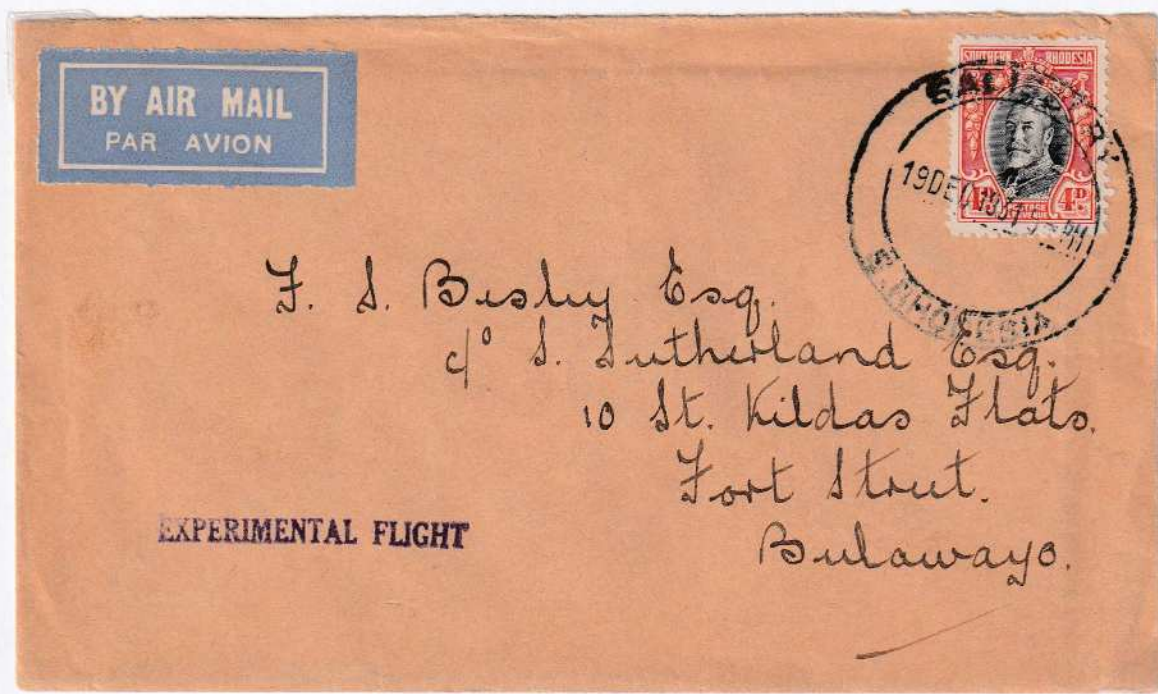 BY AIR MAIL
PAR AVION
SOUTHERN RHODESIA
4D
POSTAGE
REVENUE
SALISBURY
19 DE 1931
S. RHODESIA
F. S. Besley Esq.
c/o S. Sutherland Esq.
10 St. Kildas Flats.
Fort Street.
Bulawayo.
EXPERIMENTAL FLIGHT